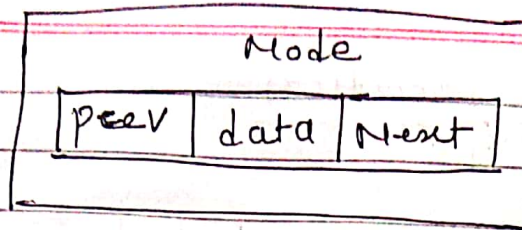 Node
prev data Next